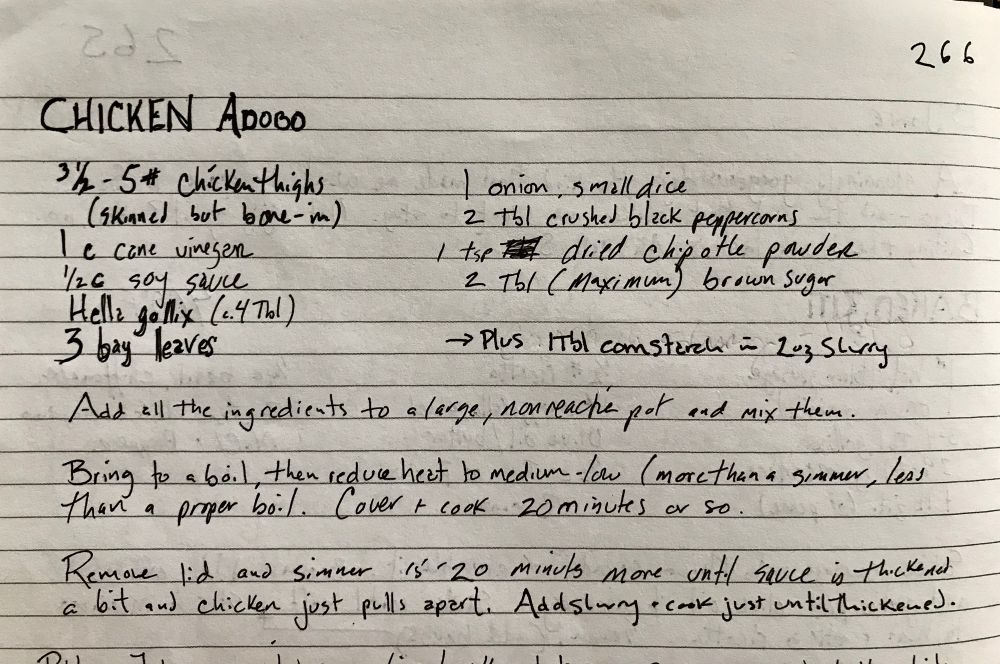 266
CHICKEN ADOBO
3½ - 5# chicken thighs
(skinned but bone-in)
1 c cane vinegar
1/2 c soy sauce
Hella gallix (c. 4 Tbl)
3 bay leaves
1 onion, small dice
2 Tbl crushed black peppercorns
1 tsp dried chipotle powder
2 Tbl (Maximum) brown sugar
→ Plus 1 Tbl cornstarch in 2oz slurry
Add all the ingredients to a large, nonreactive pot and mix them.
Bring to a boil, then reduce heat to medium-low (more than a simmer, less
than a proper boil. Cover + cook 20 minutes or so.
Remove lid and simmer 15-20 minuts more until sauce is thickened
a bit and chicken just pulls apart. Add slurry + cook just until thickened.